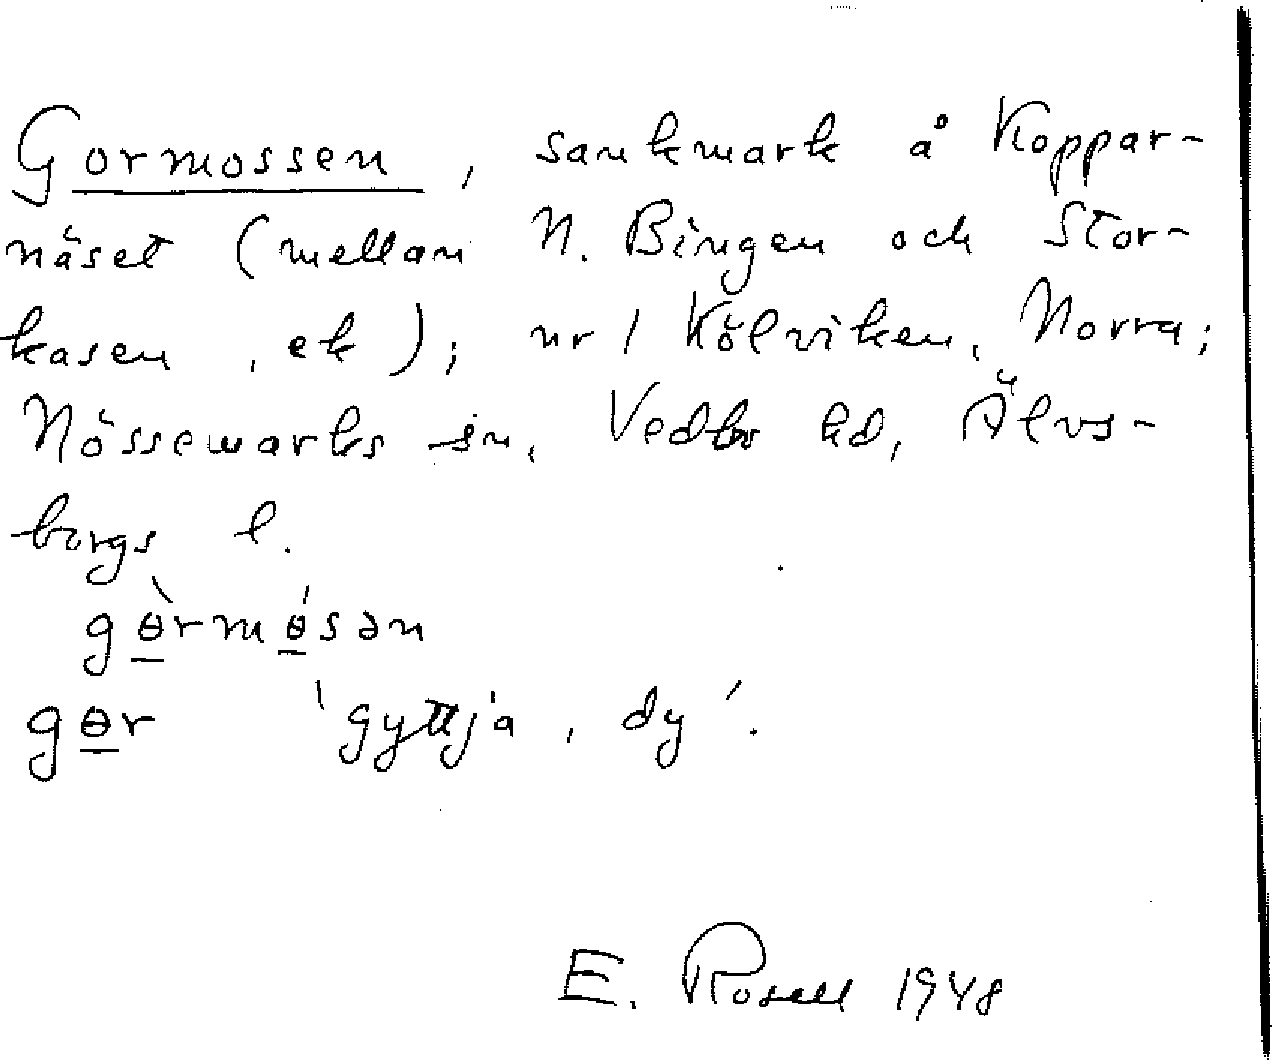 Gormossen, sankmark å Koppar-
näset (mellan N. Bingen och Stor-
kasen, ek); nr 1 Kölviken, Norra;
Nössemarks sn, Vedbo hd, Älvs-
borgs l.
gɵ̀rmɵ́sən
gɵr 'gyttja, dy'.
E. Rosell 1948